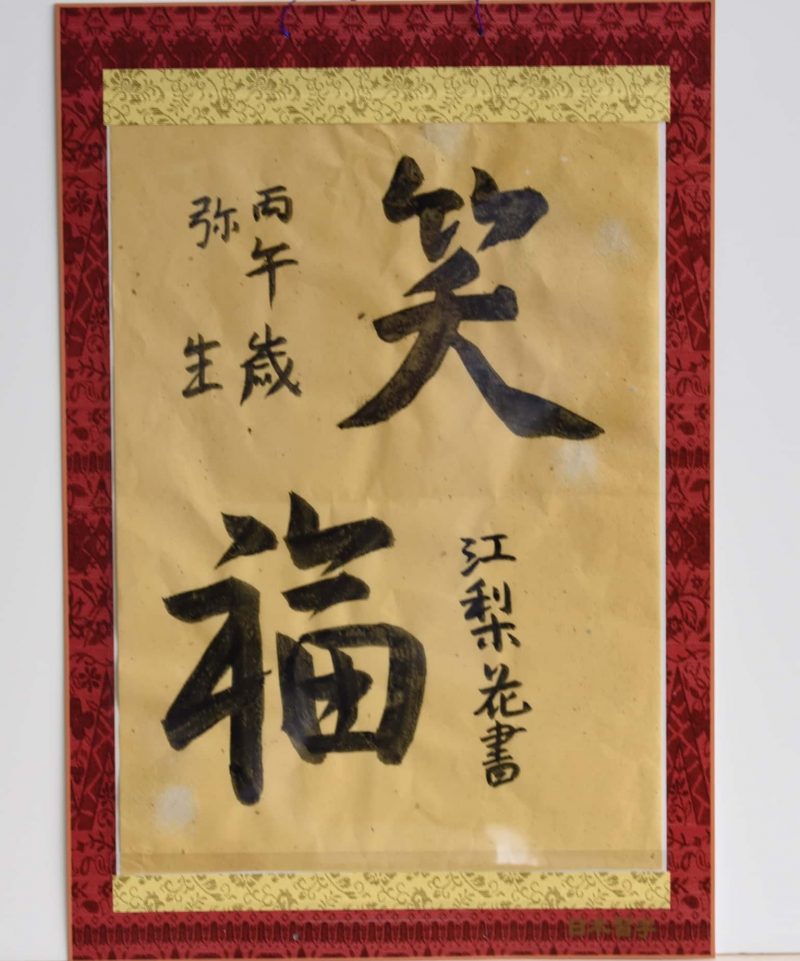 笑
福
丙午歳
弥生
江梨花書
日本習字